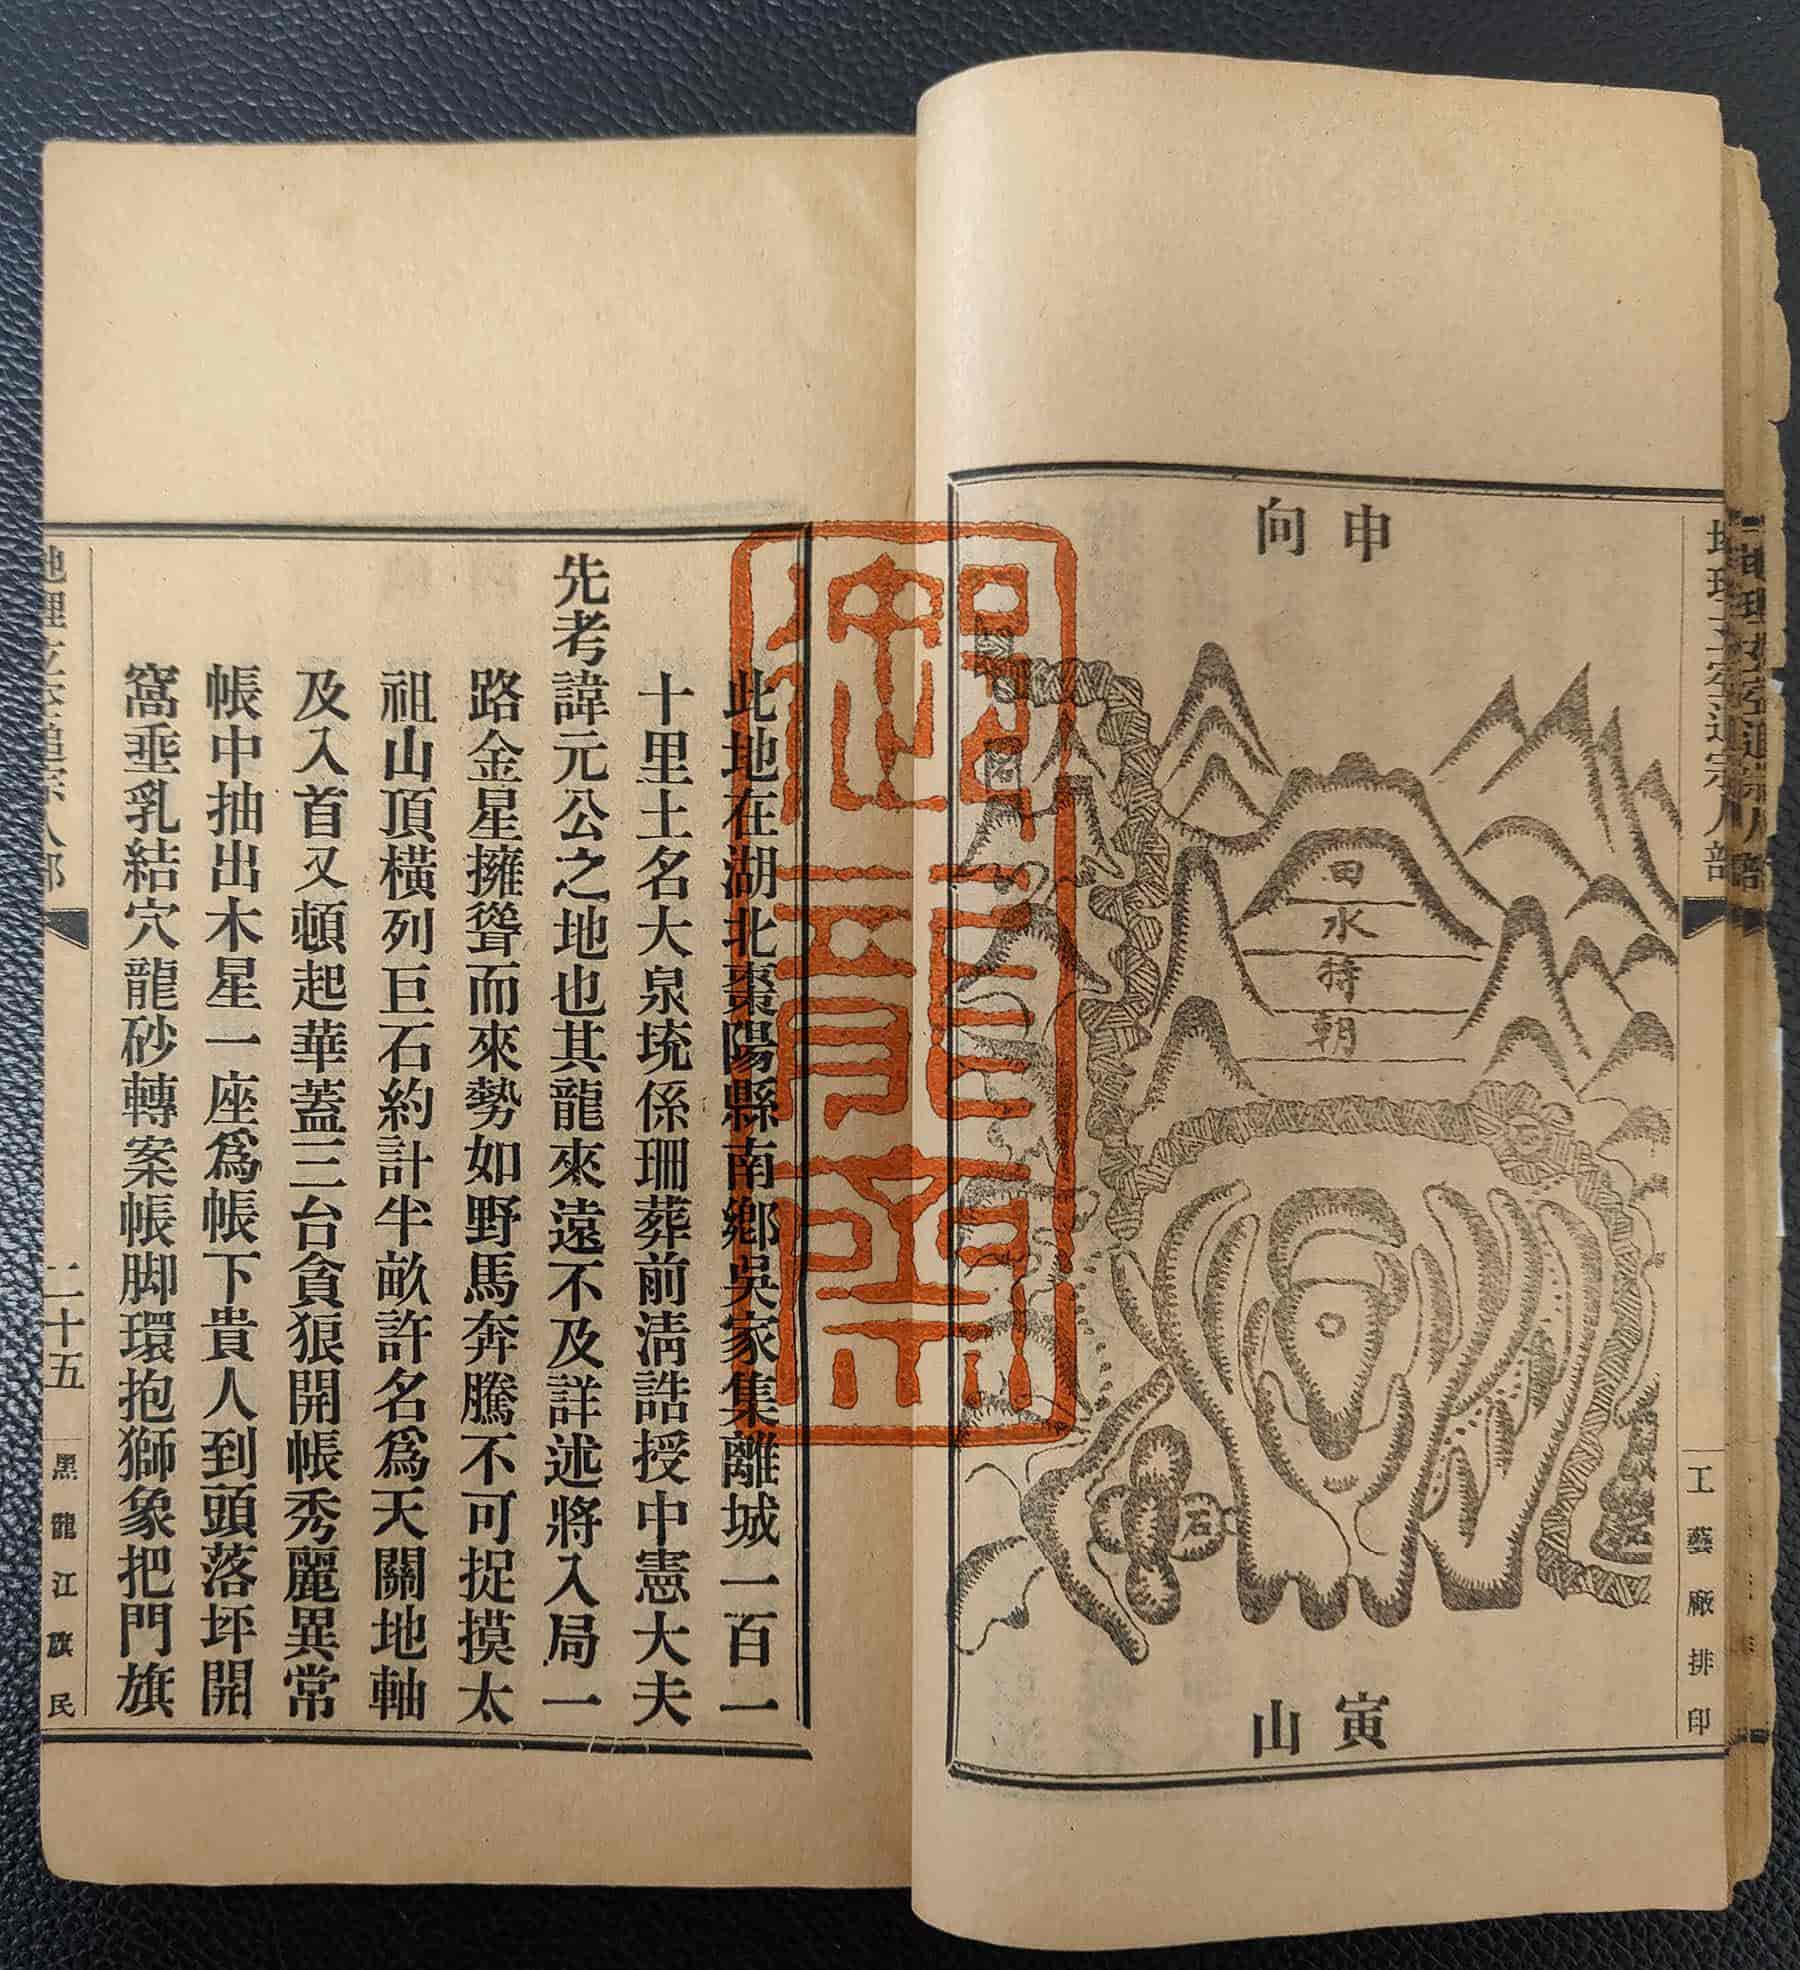 申向
田水特朝
石
石
寅山
工藝廠排印
此地在湖北棗陽縣南鄉吳家集離城一百一
十里土名大泉埫係珊葬前淸誥授中憲大夫
先考諱元公之地也其龍來遠不及詳述將入局一
路金星擁聳而來勢如野馬奔騰不可捉摸太
祖山頂橫列巨石約計半畝許名爲天關地軸
及入首又頓起華蓋三台貪狼開帳秀麗異常
帳中抽出木星一座爲帳下貴人到頭落坪開
窩垂乳結穴龍砂轉案帳脚環抱獅象把門旗
二十五
黑龍江旗民